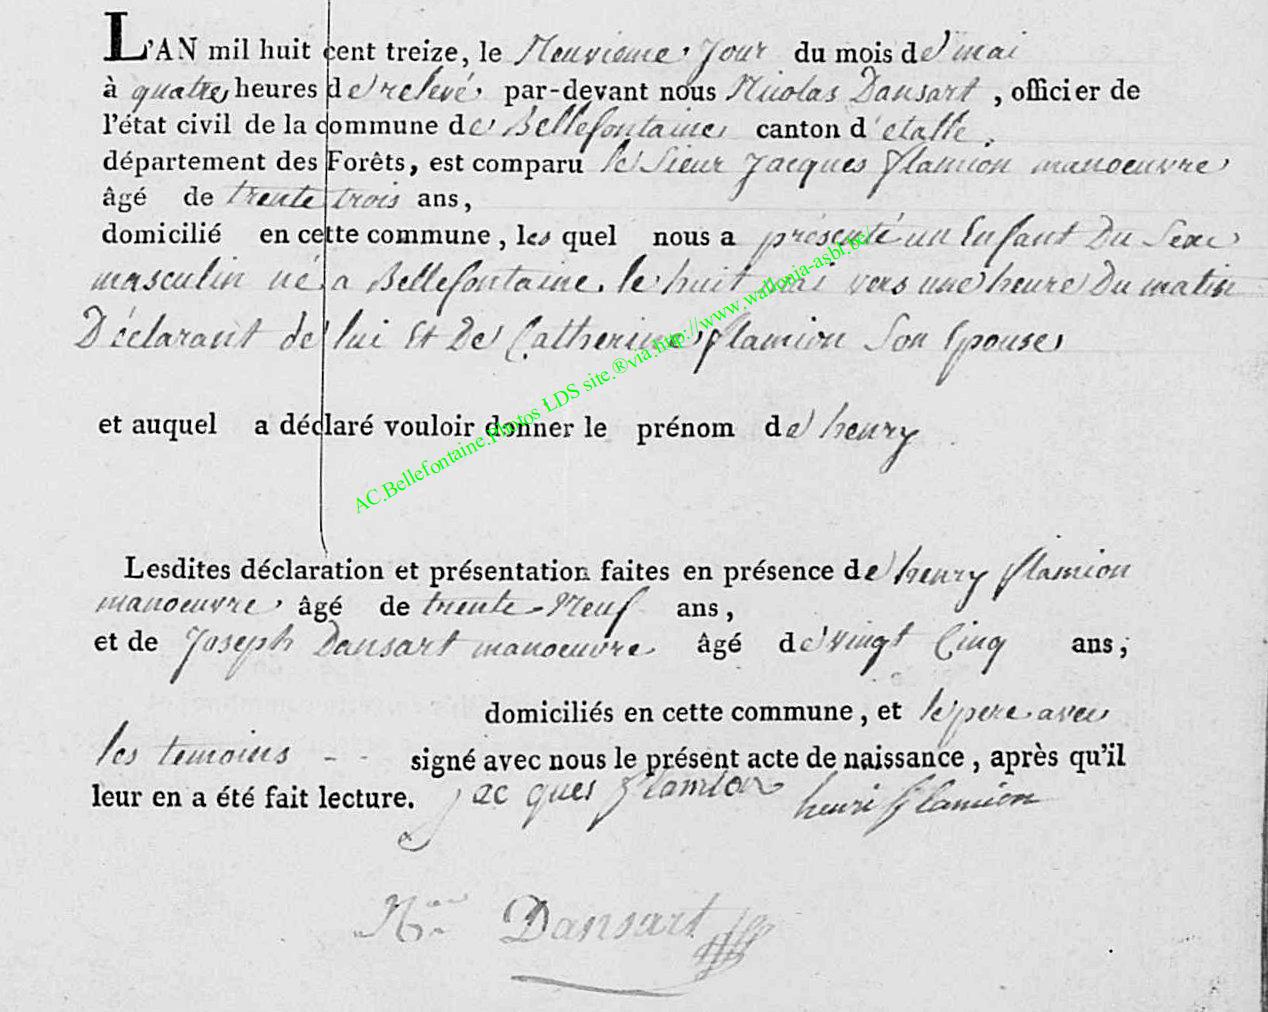 L'AN mil huit cent treize, le Neuvieme Jour du mois de mai
à quatre heures de relevé, par-devant nous Nicolas Dansart, officier de
l'état civil de la commune de Bellefontaine, canton d'etalle,
département des Forêts, est comparu le Sieur Jacques flamion manoeuvre
âgé de trente trois ans,
domicilié en cette commune, les quel nous a présenté un Enfant Du Sexe
masculin né a Bellefontaine, le huit mai vers une heure Du matin
Déclarant de lui Et De Catherine flamion Son Epouse
et auquel a déclaré vouloir donner le prénom de henry
Lesdites déclaration et présentation faites en présence de henry flamion
manoeuvre, âgé de trente-Neuf ans,
et de Joseph Dansart manoeuvre âgé de vingt Cinq ans;
domiciliés en cette commune, et le pere avec
les temoins - - signé avec nous le présent acte de naissance, après qu'il
leur en a été fait lecture. jacques flamion henri flamion
Dansart
AC.Bellefontaine.Photos LDS site.®via.http://www.wallonia-asbl.be/